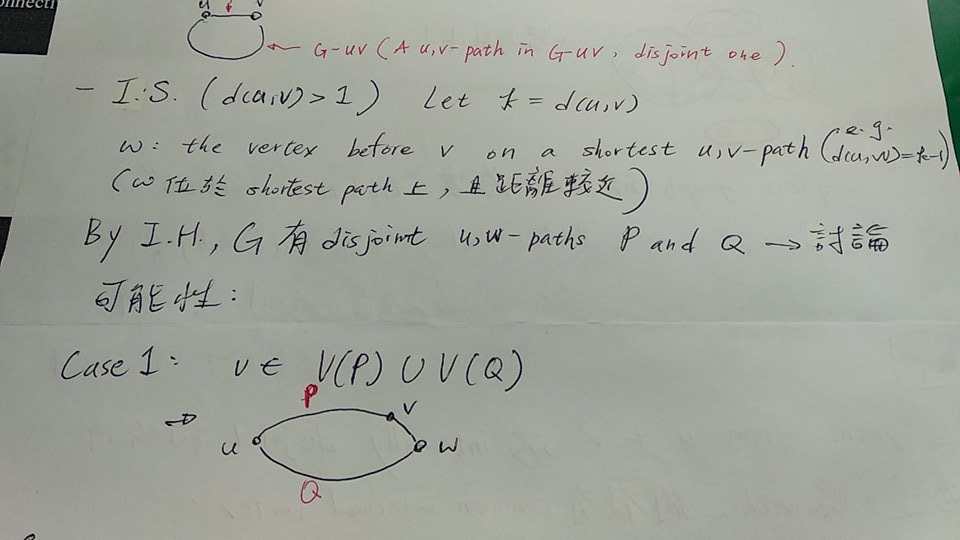 u v
G-uv (A u,v-path in G-uv, disjoint one).
- I.S. (d(u,v)>1) Let k = d(u,v)
w: the vertex before v on a shortest u,v-path (e.g. d(u,w)=k-1)
(w 位於 shortest path 上，且距離較近)
By I.H., G 有 disjoint u,w-paths P and Q → 討論
可能性：
Case 1: v ∈ V(P) ∪ V(Q)
P
→ u v w
Q